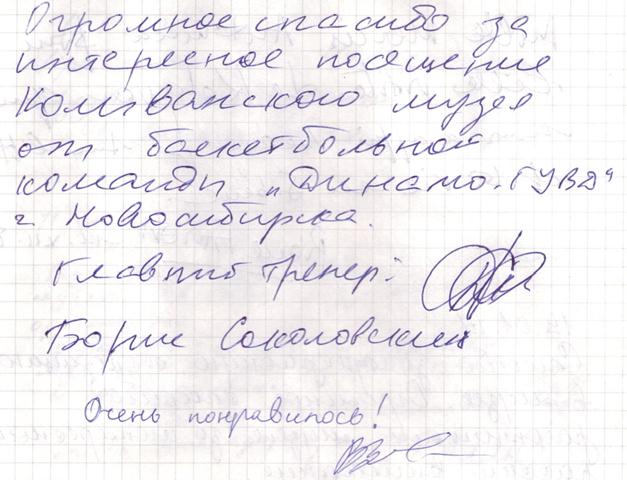 Огромное спасибо за
интересное посещение
Колыванского музея
от баскетбольной
команды „Динамо-ГУВД“
г. Новосибирска.
Главный тренер:
Борис Соколовский
Очень понравилось!